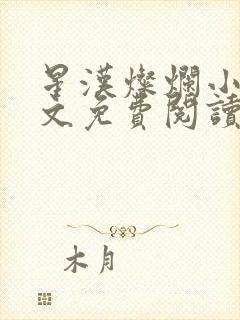 星漢燦爛小
文免費閱讀
木月